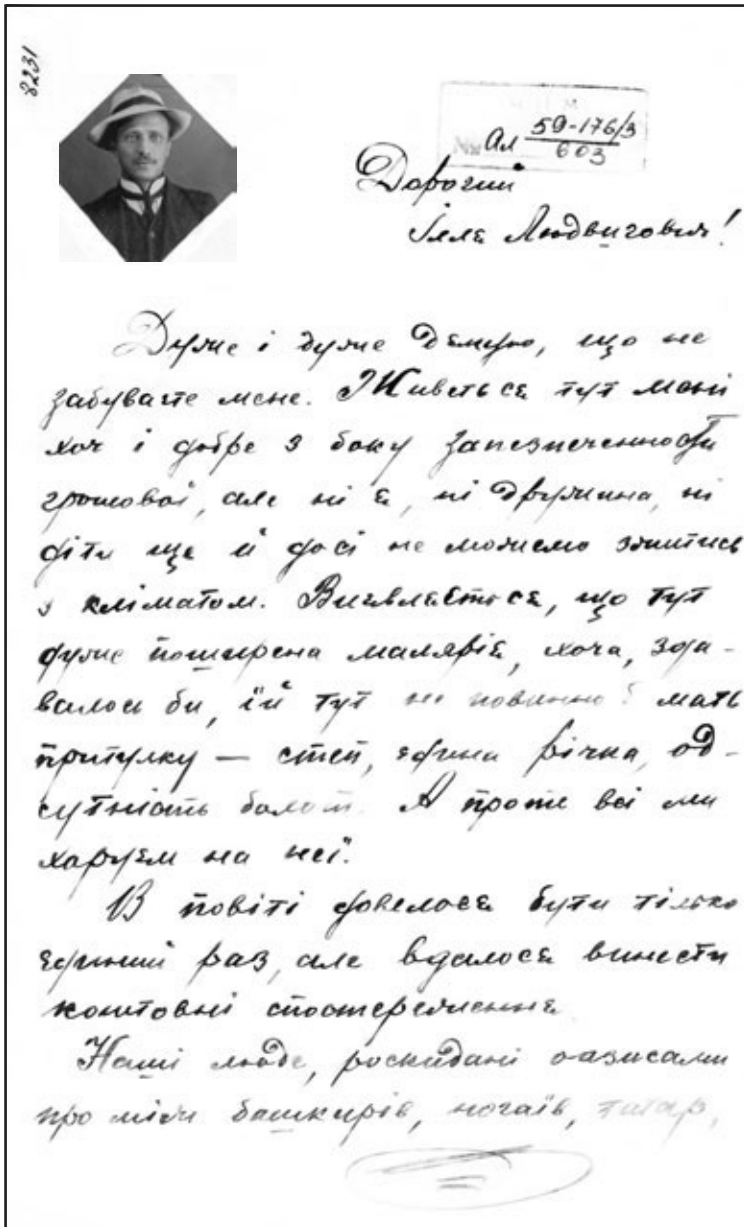 8231
№ Ал 59-176/3
603
Дорогий
Ілля Людвигович!
Дуже і дуже дякую, що не
забуваєте мене. Живеться тут мені
хоч і добре з боку запезпеченности
грошової, але ні я, ні дружина, ні
діти ще й досі не можемо зжитись
з кліматом. Виявляється, що тут
дуже поширена малярія, хоча, зда-
валось би, їй тут не повинно мать
притулку — степ, єдина річка, од-
сутність болот. А проте всі ми
харуєм на неї.
В повіті довелося бути тілько
єдиний раз, але вдалося винести
коштовні спостереження
Наші люде, роскидані оазисами
про між башкирів, ногаїв, татар,